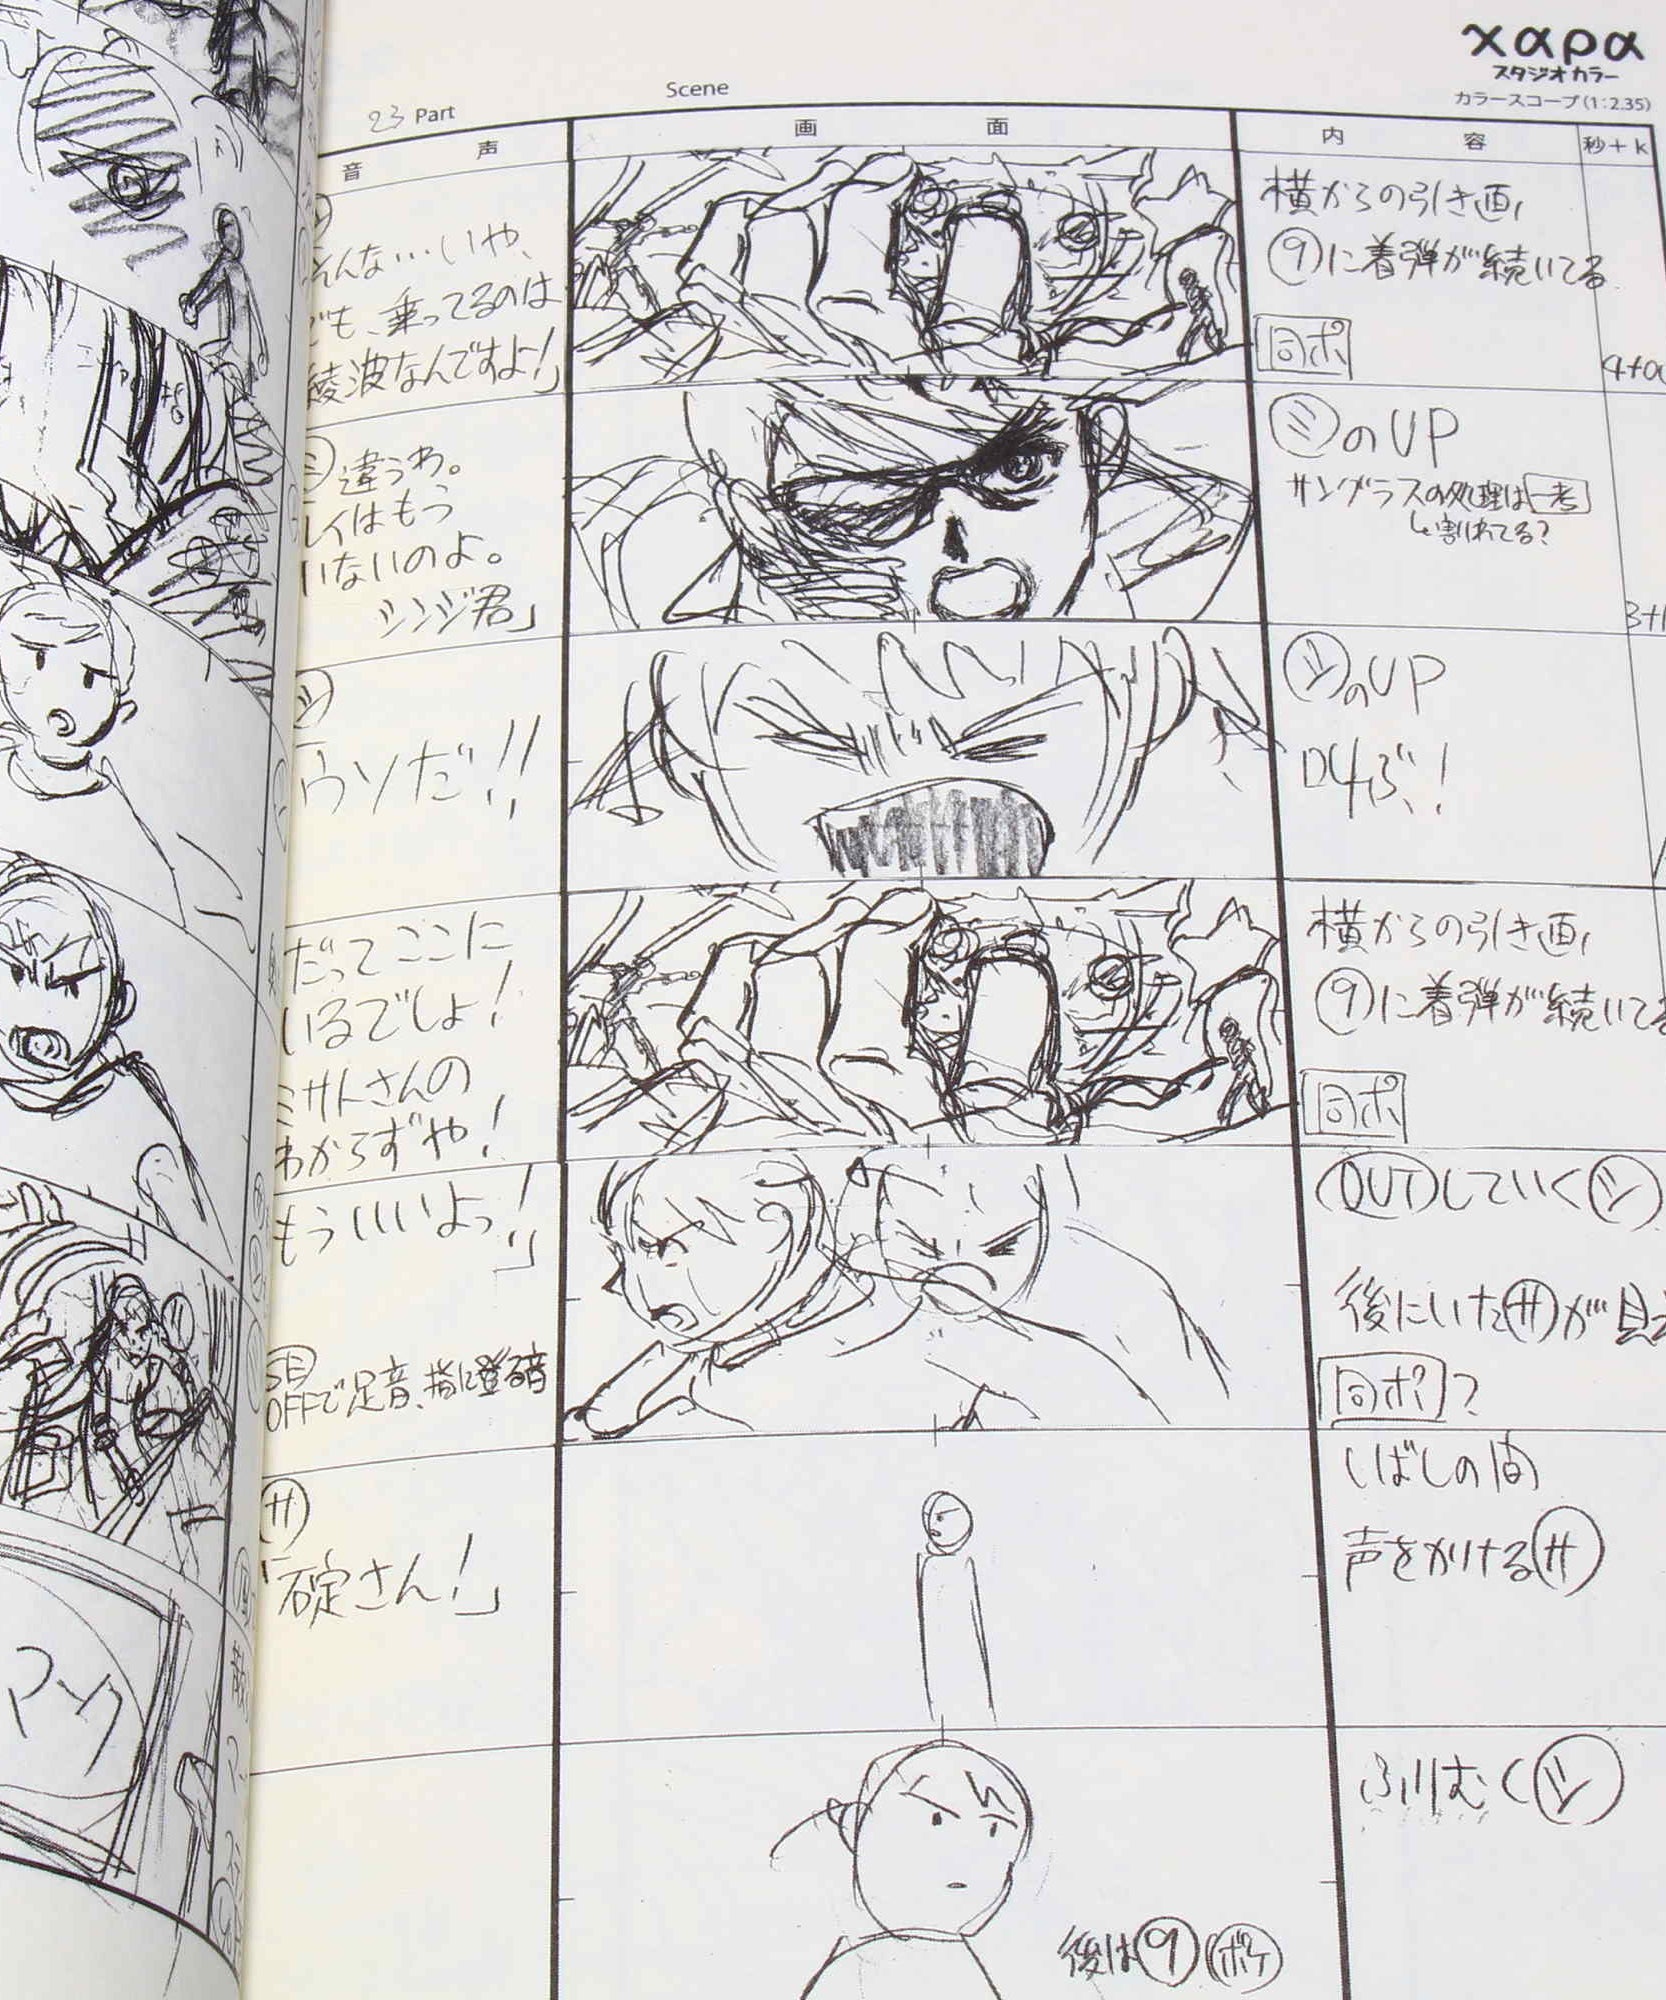 χαρα
スタジオカラー
カラースコープ(1:2.35)
Scene
23 Part
音声
画面
内容
秒+k
そんな…いや、
でも、乗ってるのは
綾波なんですよ!」
横からの引き画、
⑨に着弾が続いてる
同ポ
ミ 違うわ。
レイはもう
いないのよ。
シンジ君」
ミのUP
サングラスの処理は一考
割れてる?
シ
ウソだ!!
シのUP
叫ぶ!
だってここに
いるでしょ!
ミサトさんの
わからずや!
横からの引き画、
⑨に着弾が続いてる
同ポ
もういいよっ!」
SE
OFFで足音、指に登る音
OUTしていくシ
後にいたサが見え
同ポ?
サ
「碇さん!」
しばしの間
声をかけるサ
ふりむくシ
後は⑨(ボケ)
マーク